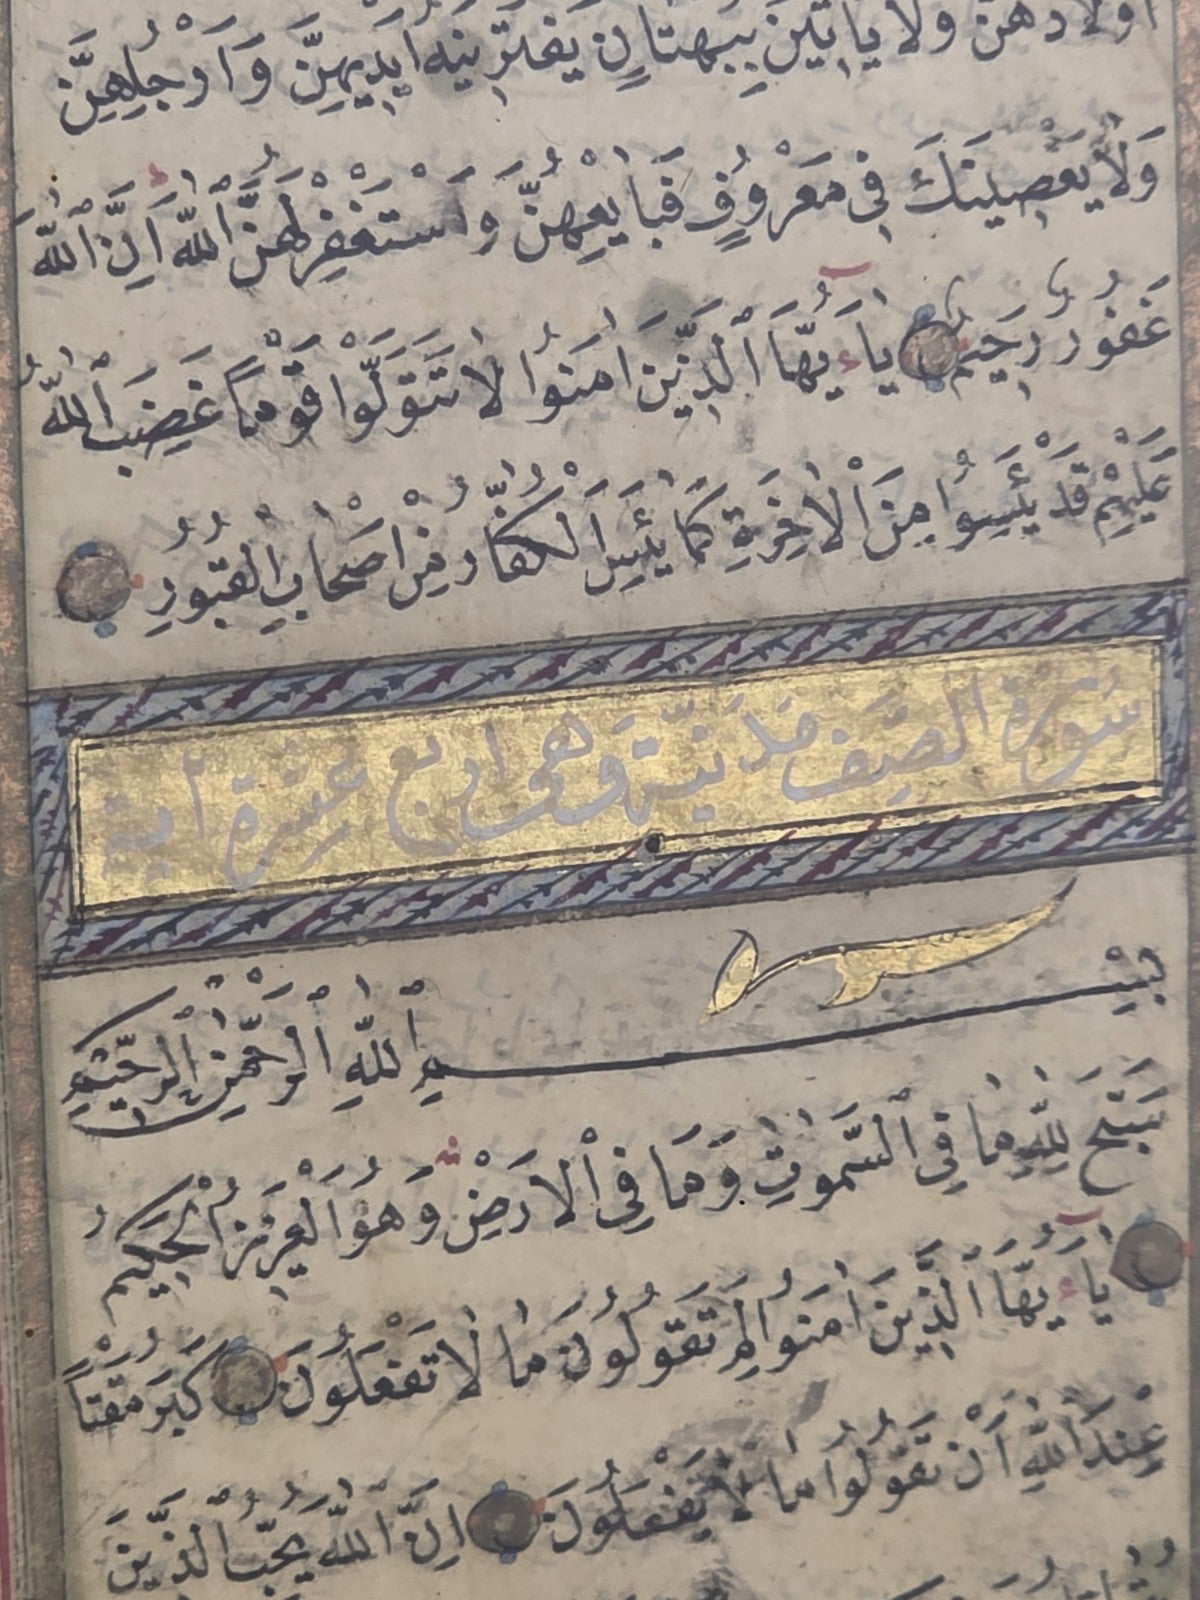 أولادهن ولا يأتين ببهتان يفترينه أيديهن وأرجلهن
وَلَا يَعْصِينَكَ فِي مَعْرُوفٍ فَبَايِعْهُنَّ وَاسْتَغْفِرْ لَهُنَّ اللَّهَ إِنَّ اللَّهَ
غَفُورٌ رَحِيمٌ يَاءَيُّهَا الَّذِينَ اٰمَنُوا لَا تَتَوَلَّوْا قَوْمًا غَضِبَ اللَّهُ
عَلَيْهِمْ قَدْ يَئِسُوا مِنَ الْاٰخِرَةِ كَمَا يَئِسَ الْكُفَّارُ مِنْ اَصْحَابِ الْقُبُورِ
سُورَةُ الصَّفِّ مَدَنِيَّةٌ وَهِىَ اربع عشرة آية
بِسْمِ اللَّهِ الرَّحْمٰنِ الرَّحِيمِ
سَبَّحَ لِلَّهِ مَا فِي السَّمٰوٰتِ وَمَا فِي الْاَرْضِ وَهُوَ الْعَزِيزُ الْحَكِيمُ
يَاءَيُّهَا الَّذِينَ اٰمَنُوا لِمَ تَقُولُونَ مَا لَا تَفْعَلُونَ كَبُرَ مَقْتًا
عِنْدَ اللَّهِ اَنْ تَقُولُوا مَا لَا تَفْعَلُونَ اِنَّ اللَّهَ يُحِبُّ الَّذِينَ